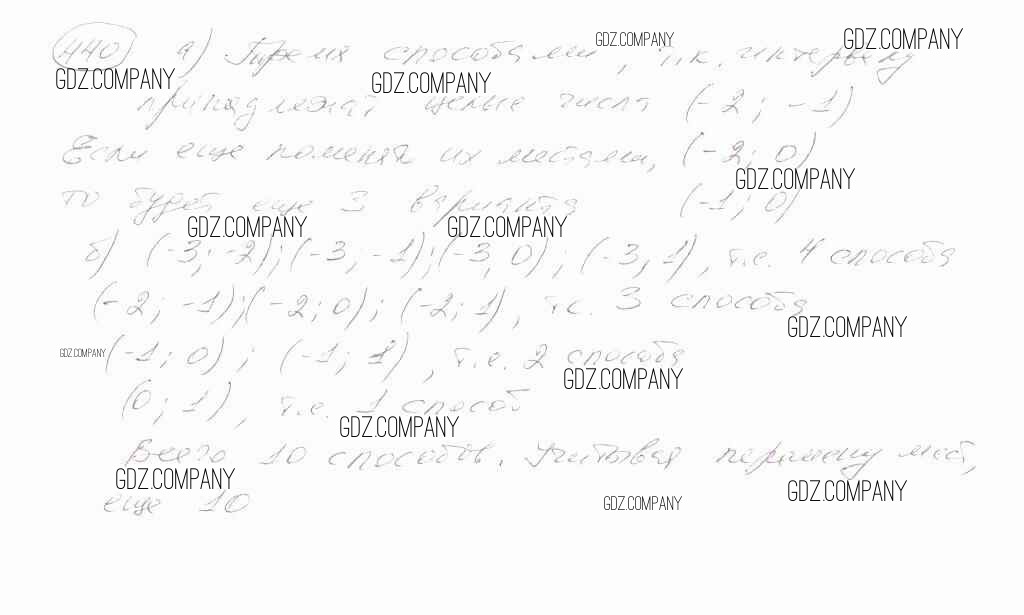 440 а) Тремя способами, т.к. интервалу
принадлежат целые числа (-2; -1)
Если еще поменять их местами, (-2; 0)
то будет еще 3 варианта (-1; 0)
б) (-3; -2); (-3, -1); (-3, 0); (-3, 1), т.е. 4 способа
(-2; -1); (-2; 0); (-2; 1), т.е. 3 способа
(-1; 0); (-1; 1), т.е. 2 способа
(0; 1), т.е. 1 способ
Всего 10 способов. Учитывая перемену мест,
еще 10
GDZ.COMPANY
GDZ.COMPANY
GDZ.COMPANY
GDZ.COMPANY
GDZ.COMPANY
GDZ.COMPANY
GDZ.COMPANY
GDZ.COMPANY
GDZ.COMPANY
GDZ.COMPANY
GDZ.COMPANY
GDZ.COMPANY
GDZ.COMPANY
GDZ.COMPANY